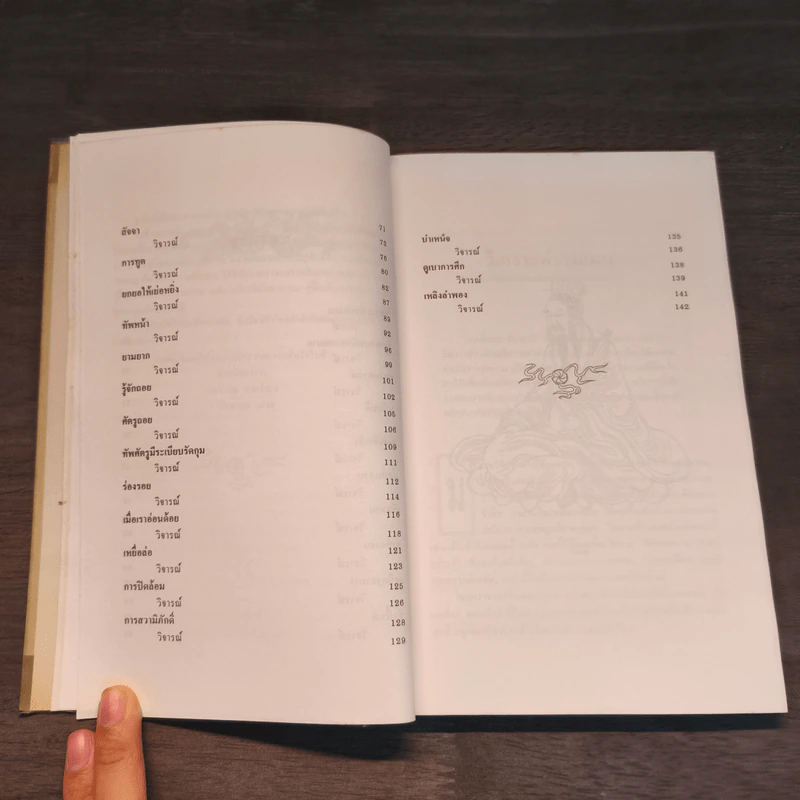 สัจจา 71
วิจารณ์ 75
การทูต 78
วิจารณ์ 80
ยกยอให้เย่อหยิ่ง 82
วิจารณ์ 87
ทัพหน้า 89
วิจารณ์ 92
ยามยาก 96
วิจารณ์ 99
รู้จักถอย 101
วิจารณ์ 102
ศัตรูถอย 105
วิจารณ์ 106
ทัพศัตรูมีระเบียบรัดกุม 109
วิจารณ์ 111
ร่องรอย 112
วิจารณ์ 114
เมื่อเราอ่อนด้อย 116
วิจารณ์ 118
เหยื่อล่อ 121
วิจารณ์ 123
การปิดล้อม 125
วิจารณ์ 126
การสวามิภักดิ์ 128
วิจารณ์ 129
บำเหน็จ 135
วิจารณ์ 136
ดูเบาการศึก 138
วิจารณ์ 139
เหลิงลำพอง 141
วิจารณ์ 142